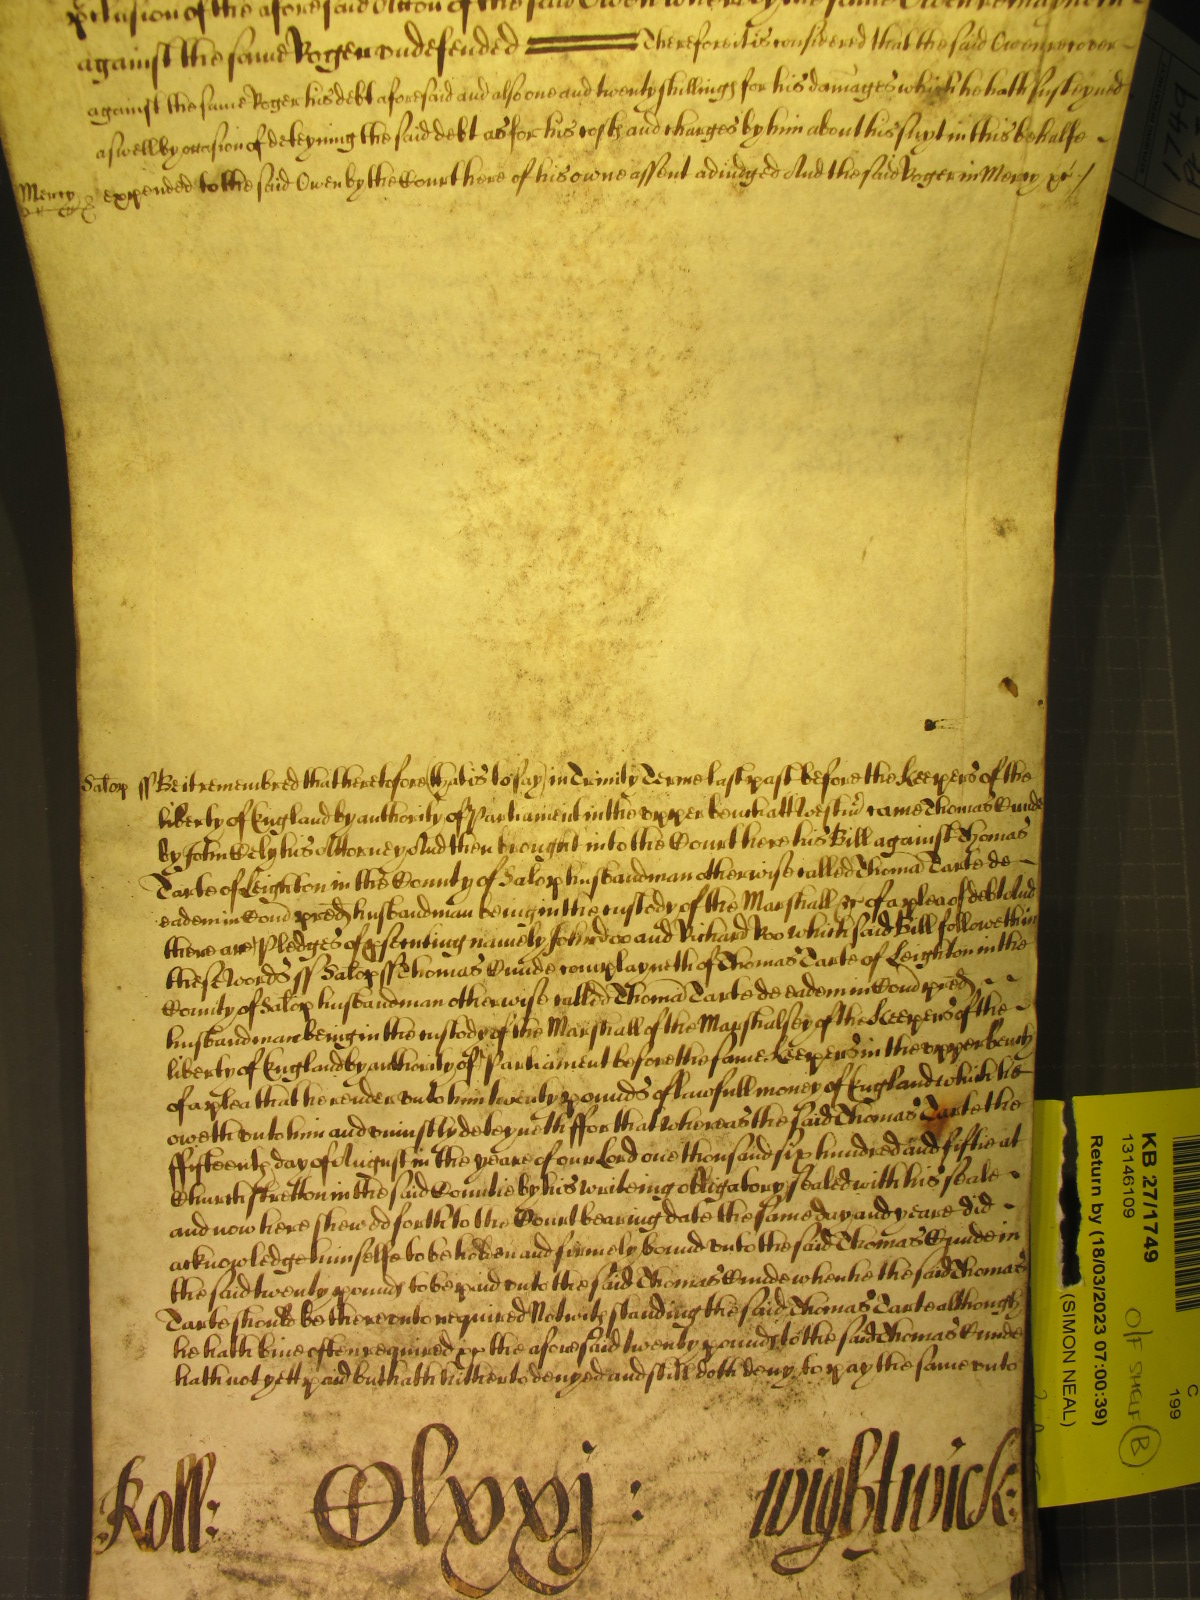 of the aforesaid Accon of the said Owen whereby the same Owen remayneth
against the same Roger undefended Therefore it is considered that the said Owen recover
against the same Roger his debt aforesaid and also one and twenty shillings for his damages which he hath susteyned
aswell by occasion of deteyning the said debt as for his costs and charges by him about his suyt in this behalfe
Mercy
expended to the said Owen by the Court here of his owne assent adiudged And the said Roger in Mercy &c /
Salop ss Be it remembred that heretofore (that is to say) in Trinity Terme last past before the Keepers of the
liberty of England by authority of Parliament in the upper bench att Westm̃ came Thomas
by John his Attorney And then brought into the Court here his Bill against Thomas
Tarte of Leighton in the County of Salop husbandman otherwise called Thomã Tarte de
eadem in Com̃ pred husbandman being in the custody of the Marshall &c of a plea of debt And
there are Pledges of prosecuting namely John doo and Richard Roo which said Bill followeth in
these words ss Salop ss Thomas complayneth of Thomas Tarte of Leighton in the
County of Salop husbandman otherwise called Thomã Tarte de eadem in Com̃ pred
husbandman being in the custody of the Marshall of the Marshalsey of the Keepers of the
liberty of England by authority of Parliament before the same Keepers in the upper bench
of a plea that he render unto him twenty pounds of lawfull money of England which he
oweth unto him and uniustly deteyneth ffor that whereas the said Thomas Tarte the
ffifteenth day of August in the yeare of our Lord one thousand six hundred and fiftie at
Church stretton in the said Countie by his writeing obligatory sealed with his seale
and now here shewed forth to the Court bearing date the same day and yeare did
acknowledge himselfe to be holden and firmely bound unto the said Thomas in
the said twenty pounds to be paid unto the said Thomas when he the said Thomas
Tarte should be thereunto required Notwithstanding the said Thomas Tarte although
he hath bine often required &c the aforesaid twenty pounds to the said Thomas
hath not yett paid but hath hitherto denyed and still doth deny to pay the same unto
Roll: Clxxj: Wightwick:
1749
KB 27/1749
13146109
Return by (18/03/2023 07:00:39)
(SIMON NEAL)
O/F SHELF B
C
199